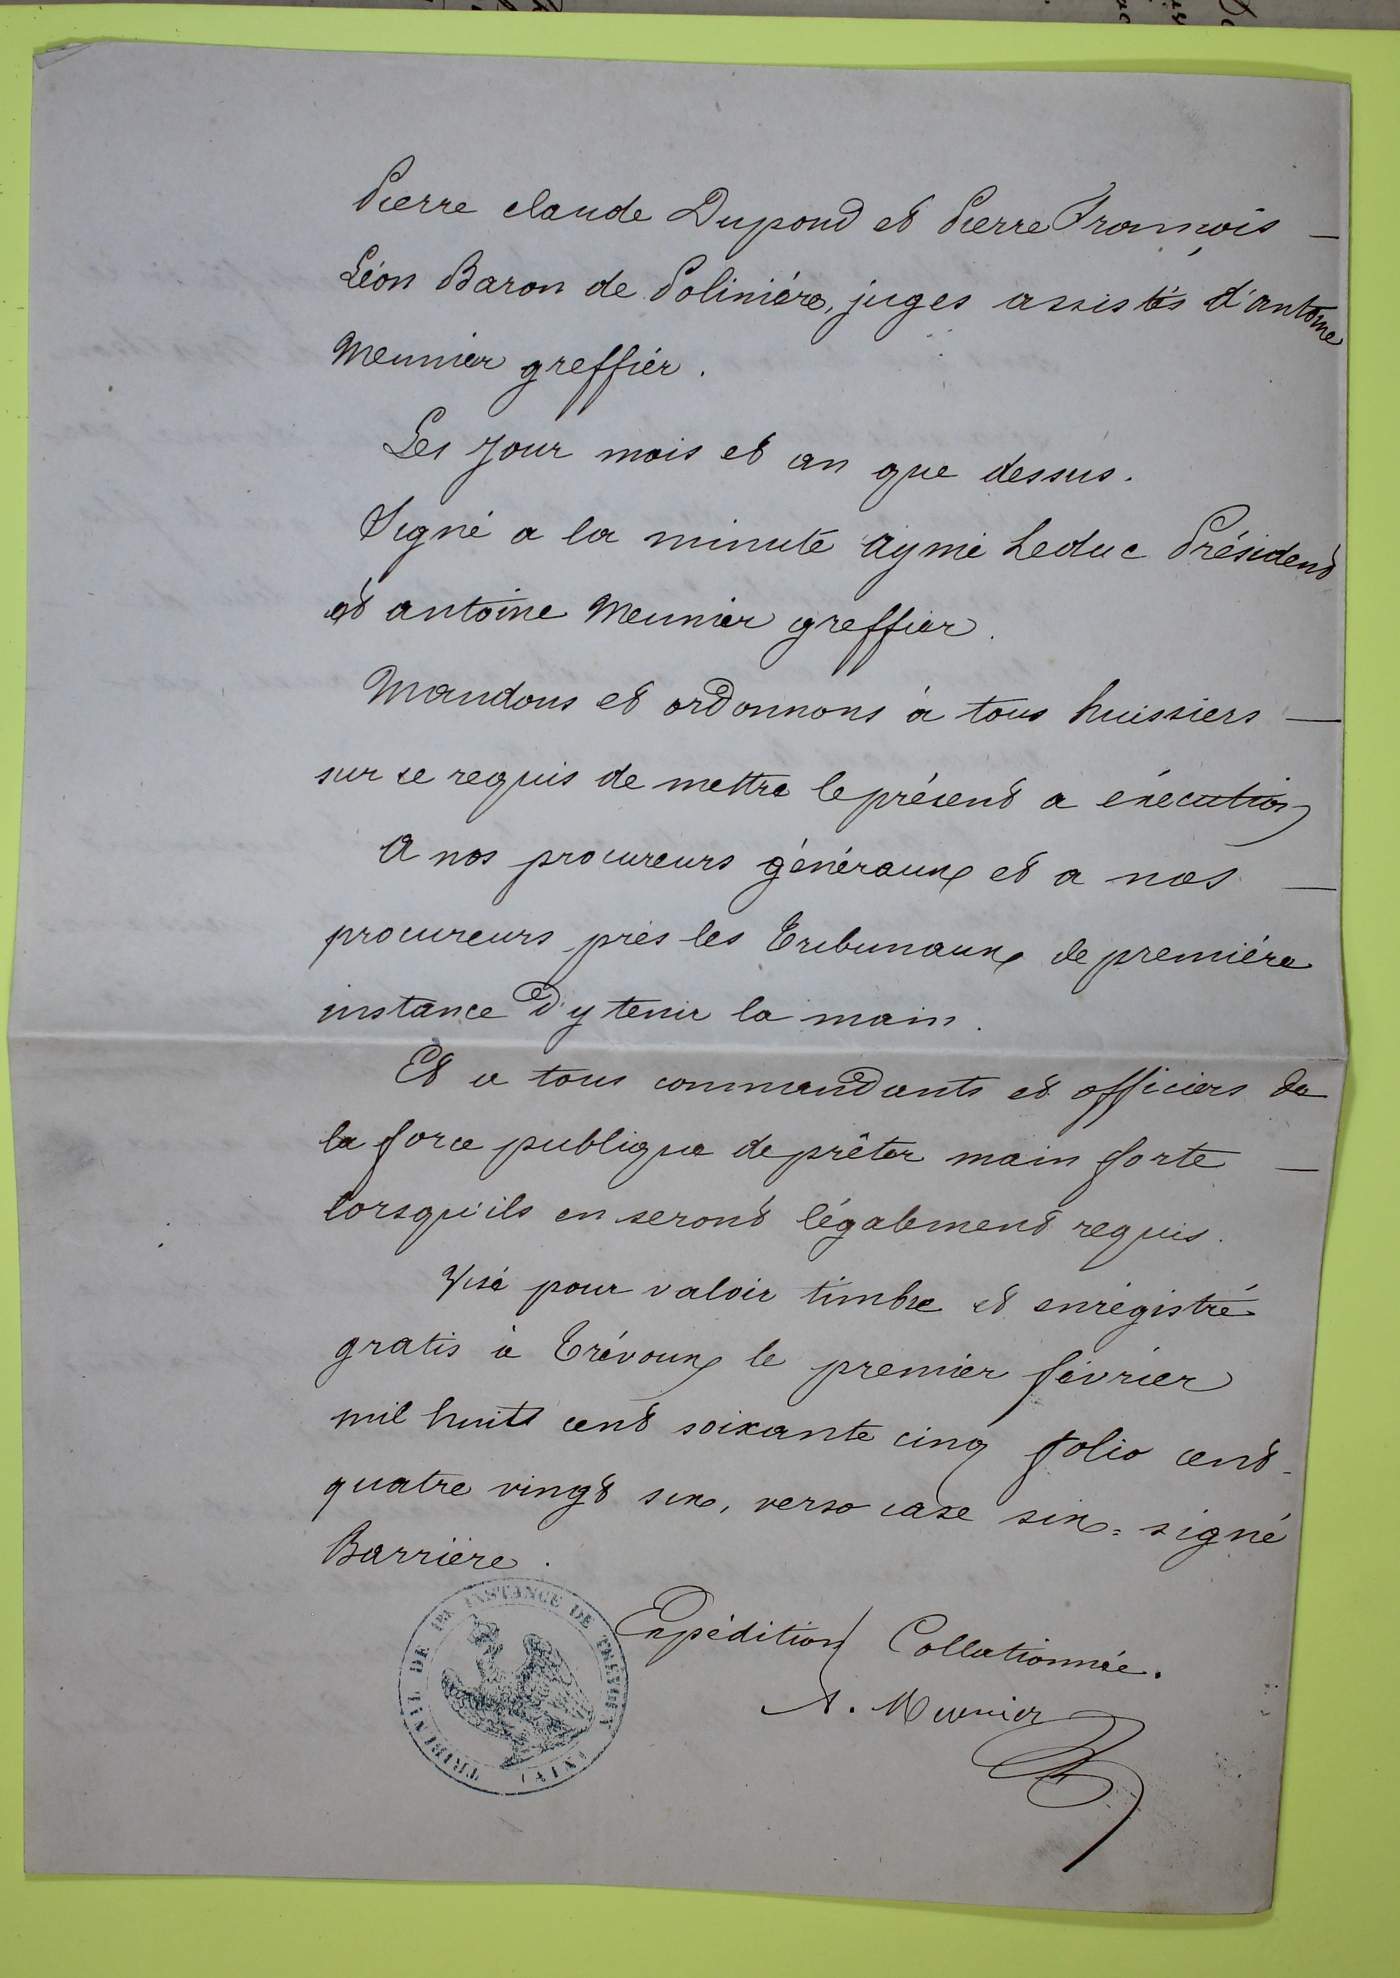 Pierre claude Dupond et Pierre François —
Léon Baron de Polinière, juges assistés d'antoine
Meunier greffier.
Les jour mois et an que dessus.
Signé a la minute aymé Leduc Président
et antoine Meunier greffier.
Mandons et ordonnons à tous huissiers —
sur ce requis de mettre le présent a éxécution
A nos procureurs généraux et a nos —
procureurs près les Tribunaux de première
instance d'y tenir la main.
Et a tous commandants et officiers de
la force publique de prêter main forte —
lorsqu'ils en seront légalement requis.
Visé pour valoir timbre et enrégistré
gratis à Trévoux le premier février
mil huit cent soixante cinq folio cent
quatre vingt six, verso case six = signé
Barrière.
Expédition Collationnée.
A. Meunier
TRIBUNAL DE 1RE INSTANCE DE TREVOUX
(AIN)